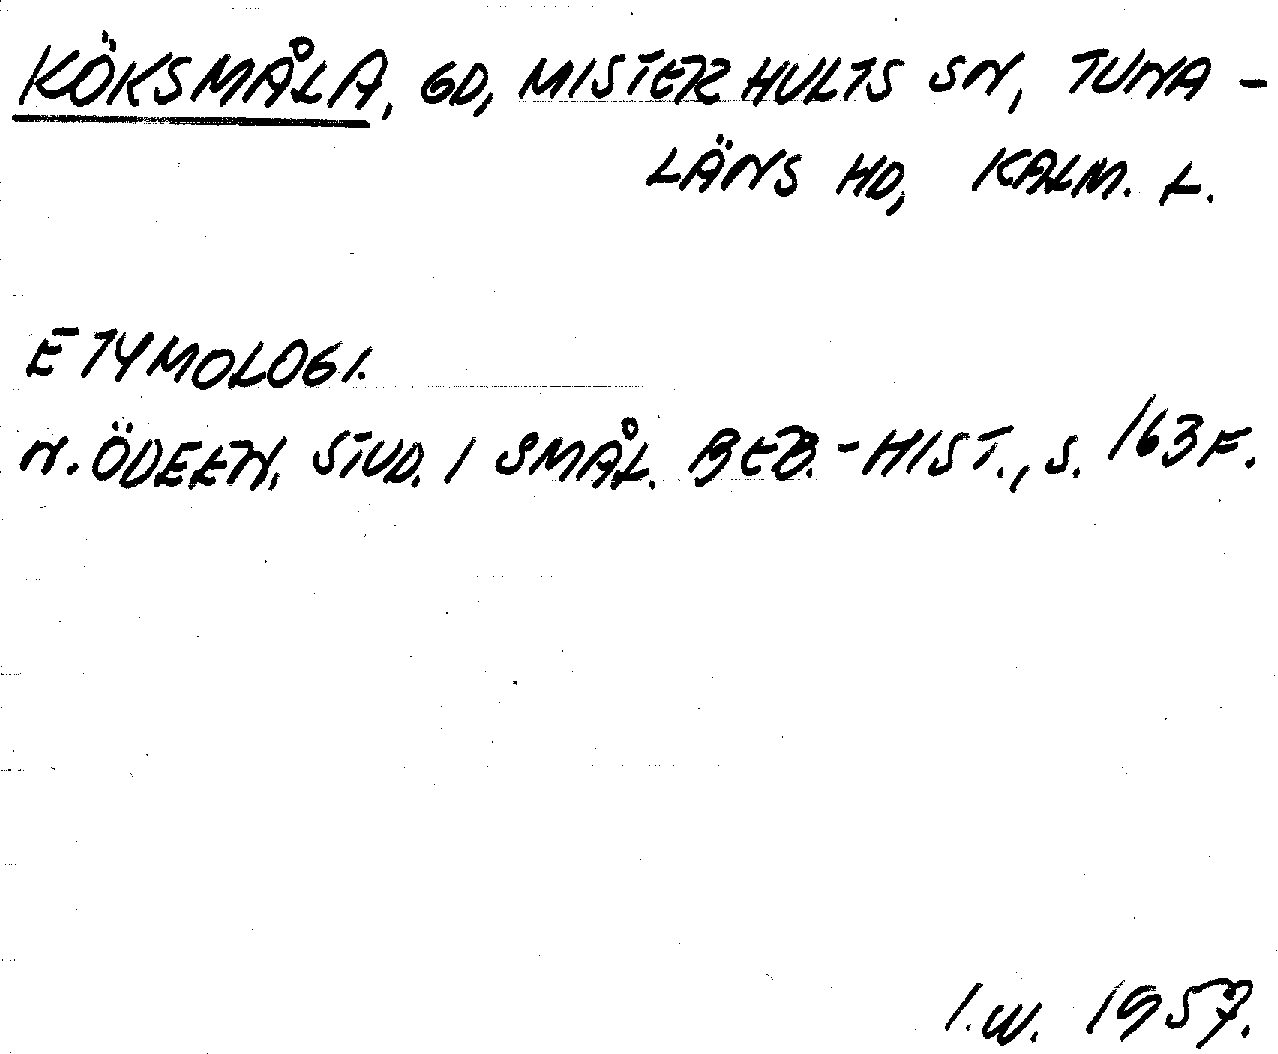 KÖKSMÅLA, GD, MISTERHULTS SN, TUNA-
LÄNS HD, KALM. L.
ETYMOLOGI.
N. ÖDEEN. STUD. I SMÅL. BEB.-HIST., S. 163 F.
I.W. 1957.